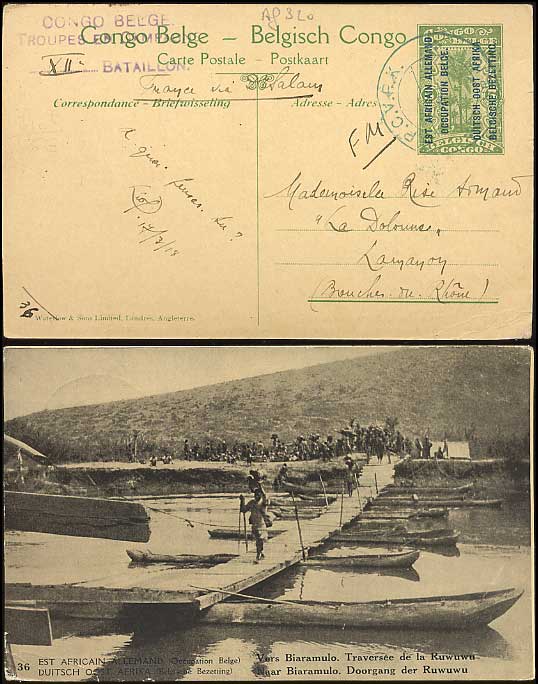 AP 320
CONGO BELGE.
TROUPES EN
XII BATAILLON.
Congo Belge – Belgisch Congo
Carte Postale – Postkaart
France via D. Salam
Correspondance – Briefwisseling
Adresse – Adres
EST AFRICAIN ALLEMAND
OCCUPATION BELGE
DUITSCH-OOST-AFRIKA
BELGISCHE BEZETTING
BELGISCH
CONGO
B.P.C.V.P.K.
FM
Mademoiselle Rose Armand
"La Dolonne"
Lamanon
(Bouches-du-Rhône)
A quoi penses-tu?
17/3/18
36
Waterlow & Sons Limited, Londres, Angleterre.
36
EST AFRICAIN ALLEMAND (Occupation Belge)
DUITSCH OOST AFRIKA (Belgische Bezetting)
Vers Biaramulo. Traversée de la Ruwuwu
Naar Biaramulo. Doorgang der Ruwuwu